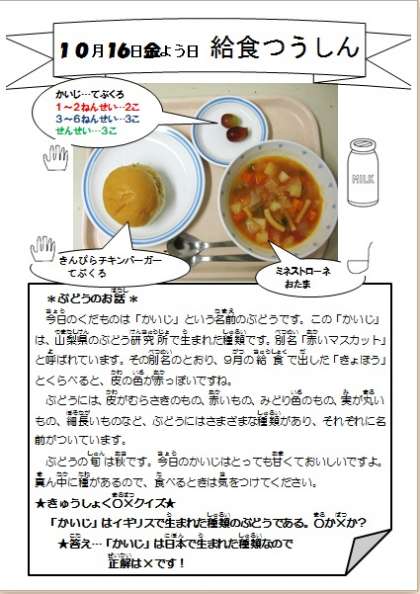 10月16日金よう日 給食つうしん
かいじ…てぶくろ
1~2ねんせい…2こ
3~6ねんせい…3こ
せんせい…3こ
MILK
きんぴらチキンバーガー
てぶくろ
ミネストローネ
おたま
*ぶどうのお話*
今日のくだものは「かいじ」という名前のぶどうです。この「かいじ」
は、山梨県のぶどう研究所で生まれた種類です。別名「赤いマスカット」
と呼ばれています。その別名のとおり、9月の給食で出した「きょほう」
とくらべると、皮の色が赤っぽいですね。
ぶどうには、皮がむらさきのもの、赤いもの、みどり色のもの、実が丸い
もの、細長いものなど、ぶどうにはさまざまな種類があり、それぞれに名
前がついています。
ぶどうの旬は秋です。今日のかいじはとっても甘くておいしいですよ。
真ん中に種があるので、食べるときは気をつけてください。
★きゅうしょく○×クイズ★
「かいじ」はイギリスで生まれた種類のぶどうである。○か×か?
★答え…「かいじ」は日本で生まれた種類なので
正解は×です!